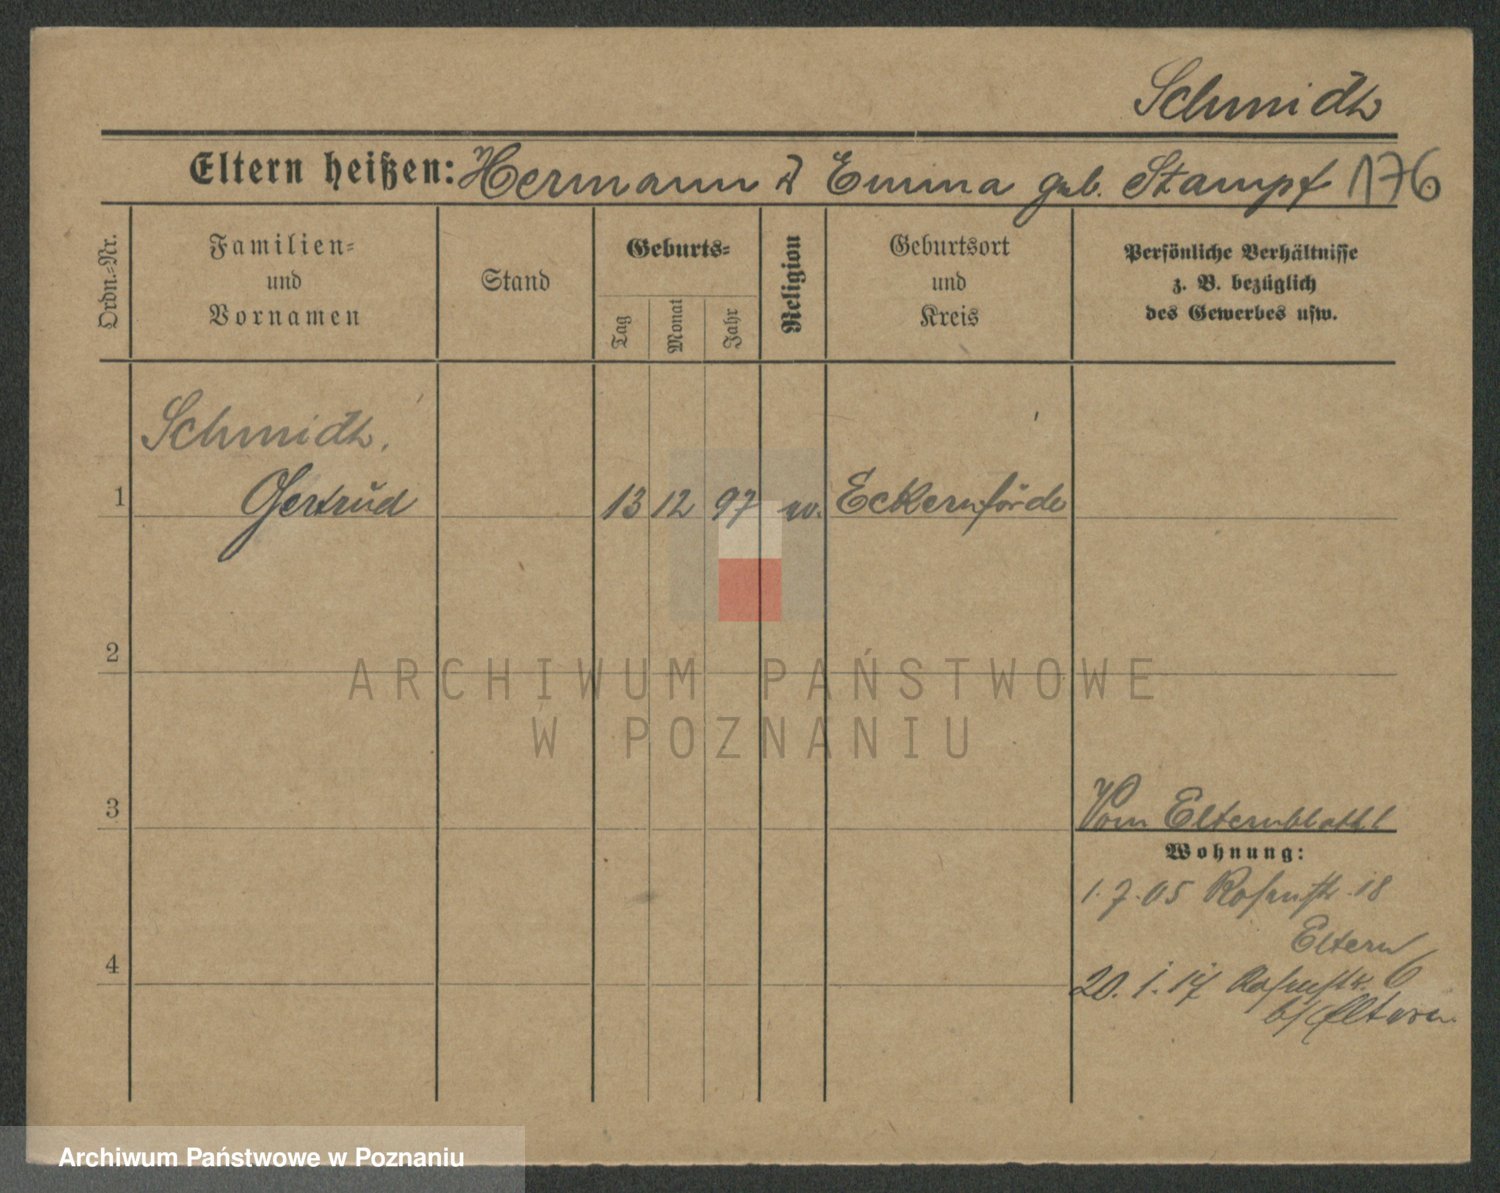 Schmidt
Eltern heißen: Hermann u Emma geb. Stampf 176
Ordn.-Nr.
Familien-
und
Vornamen
Stand
Geburts-
Tag
Monat
Jahr
Religion
Geburtsort
und
Kreis
Persönliche Verhältnisse
z. B. bezüglich
des Gewerbes usw.
Schmidt,
1 Gertrud 13 12 97 ev. Eckernförde
2
ARCHIWUM PAŃSTWOWE
W POZNANIU
3 Vom Elternblatt 1
Wohnung:
1.7.05 Rosenstr. 18
Eltern
4
20.1.17 Rosenstr. 6
b/ Eltern.
Archiwum Państwowe w Poznaniu